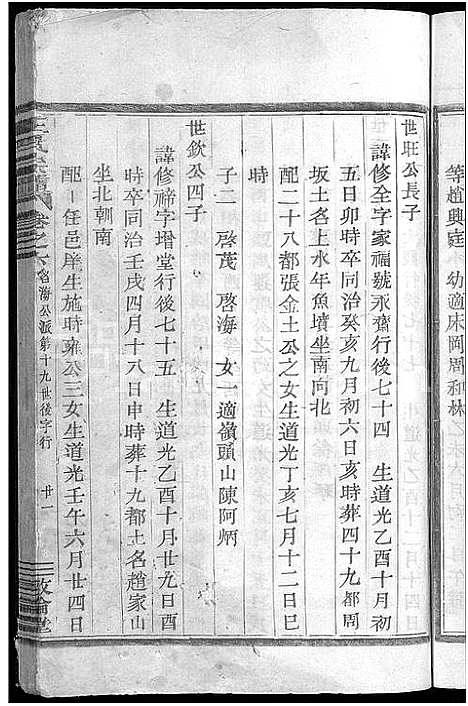 等趙興庭 幼適床岡周和林
世旺公長子
諱修全字家福號永齋行後七十四 生道光乙酉十月初
五日卯時卒同治癸亥九月初六日亥時葬四十九都周
坂土名上水年魚墳坐南向北
配二十八都張金土公之女生道光丁亥七月十二日巳
時
子二 啓茂 啓海 女一適嶺頭山陳阿炳
世欽公四子
諱修禘字增堂行後七十五 生道光乙酉十月廿九日酉
時卒同治壬戌四月十八日申時葬十九都土名趙家山
坐北朝南
配 任邑庠生施時雍公三女生道光壬午六月廿四日
王氏宗譜 卷之六 名海公派第十九世後字行 廿一 敦倫堂